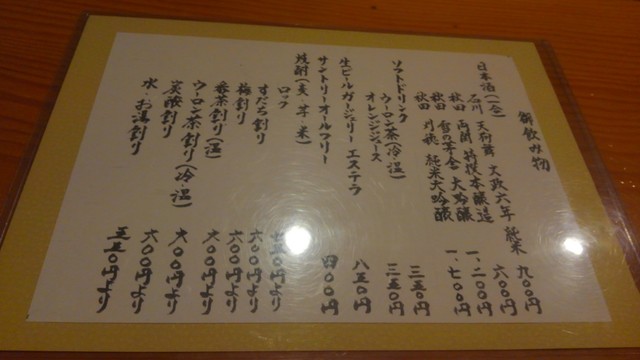 御飲み物
日本酒(一合)
石川 天狗舞 文政六年 純米 九〇〇円
秋田 両関 特撰本醸造 六〇〇円
秋田 雪の茅舎 大吟醸 一、二〇〇円
秋田 刈穂 純米大吟醸 一、七〇〇円
ソフトドリンク
ウーロン茶(冷・温) 三五〇円
オレンジジュース 三五〇円
生ビール ガージェリー エステラ 八五〇円
サントリーオールフリー 四〇〇円
焼酎(麦 芋 米)
ロック 七五〇円より
すだち割り 六〇〇円より
梅割り 六〇〇円より
番茶割り(温) 六〇〇円より
ウーロン茶割り(冷・温) 六〇〇円より
炭酸割り 六〇〇円より
水・お湯割り 五五〇円より